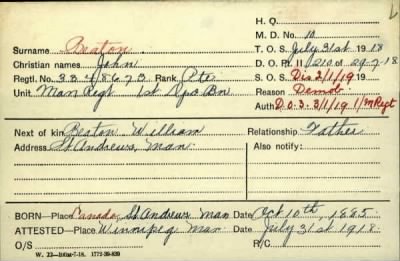 H. Q.
M. D. No. 10
Surname Beaton
T. O. S. July 31st 1918
Christian names John
D. O. Pt. II 210 of 29-7-18
Regtl. No. Rank Pte
S. O. S. Dis 2/1/19 19
Unit Man Regt 1st Dps Bn
Reason Demob.
Auth D.O.3. 3/1/19 1/M Regt
Next of kin Beaton William Relationship Father
Address St Andrews, Man Also notify:
BORN—Place Canada, St Andrews Man Date Oct 10th, 1885
ATTESTED—Place Winnipeg Man Date July 31st 1918
O/S R/C